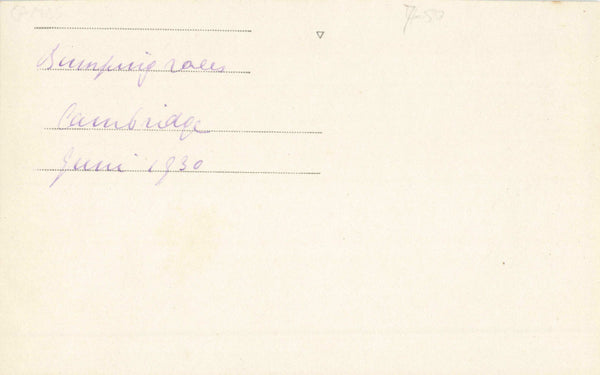 Bumping races
Cambridge
Juni 1930